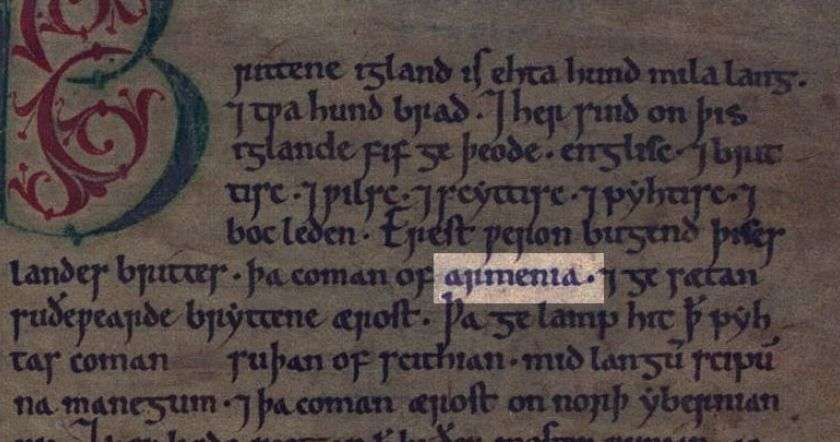 Brittene igland is ehta hund mila lang.
⁊ tƿa hund brad. ⁊ her sind on þis
iglande fif ge þeode. englisc. ⁊ brit
tisc. ⁊ ƿilsc. ⁊ scyttisc. ⁊ pyhtisc. ⁊
boc leden. Erest ƿeron bugend þises
landes brittes. þa coman of armenia. ⁊ ge sætan
suðeƿearde bryttene ærost. Þa ge lamp hit ꝥ pyh
tas coman suþan of scithian. mid langū scipū
na manegum. ⁊ þa coman ærost on norþ ybernian